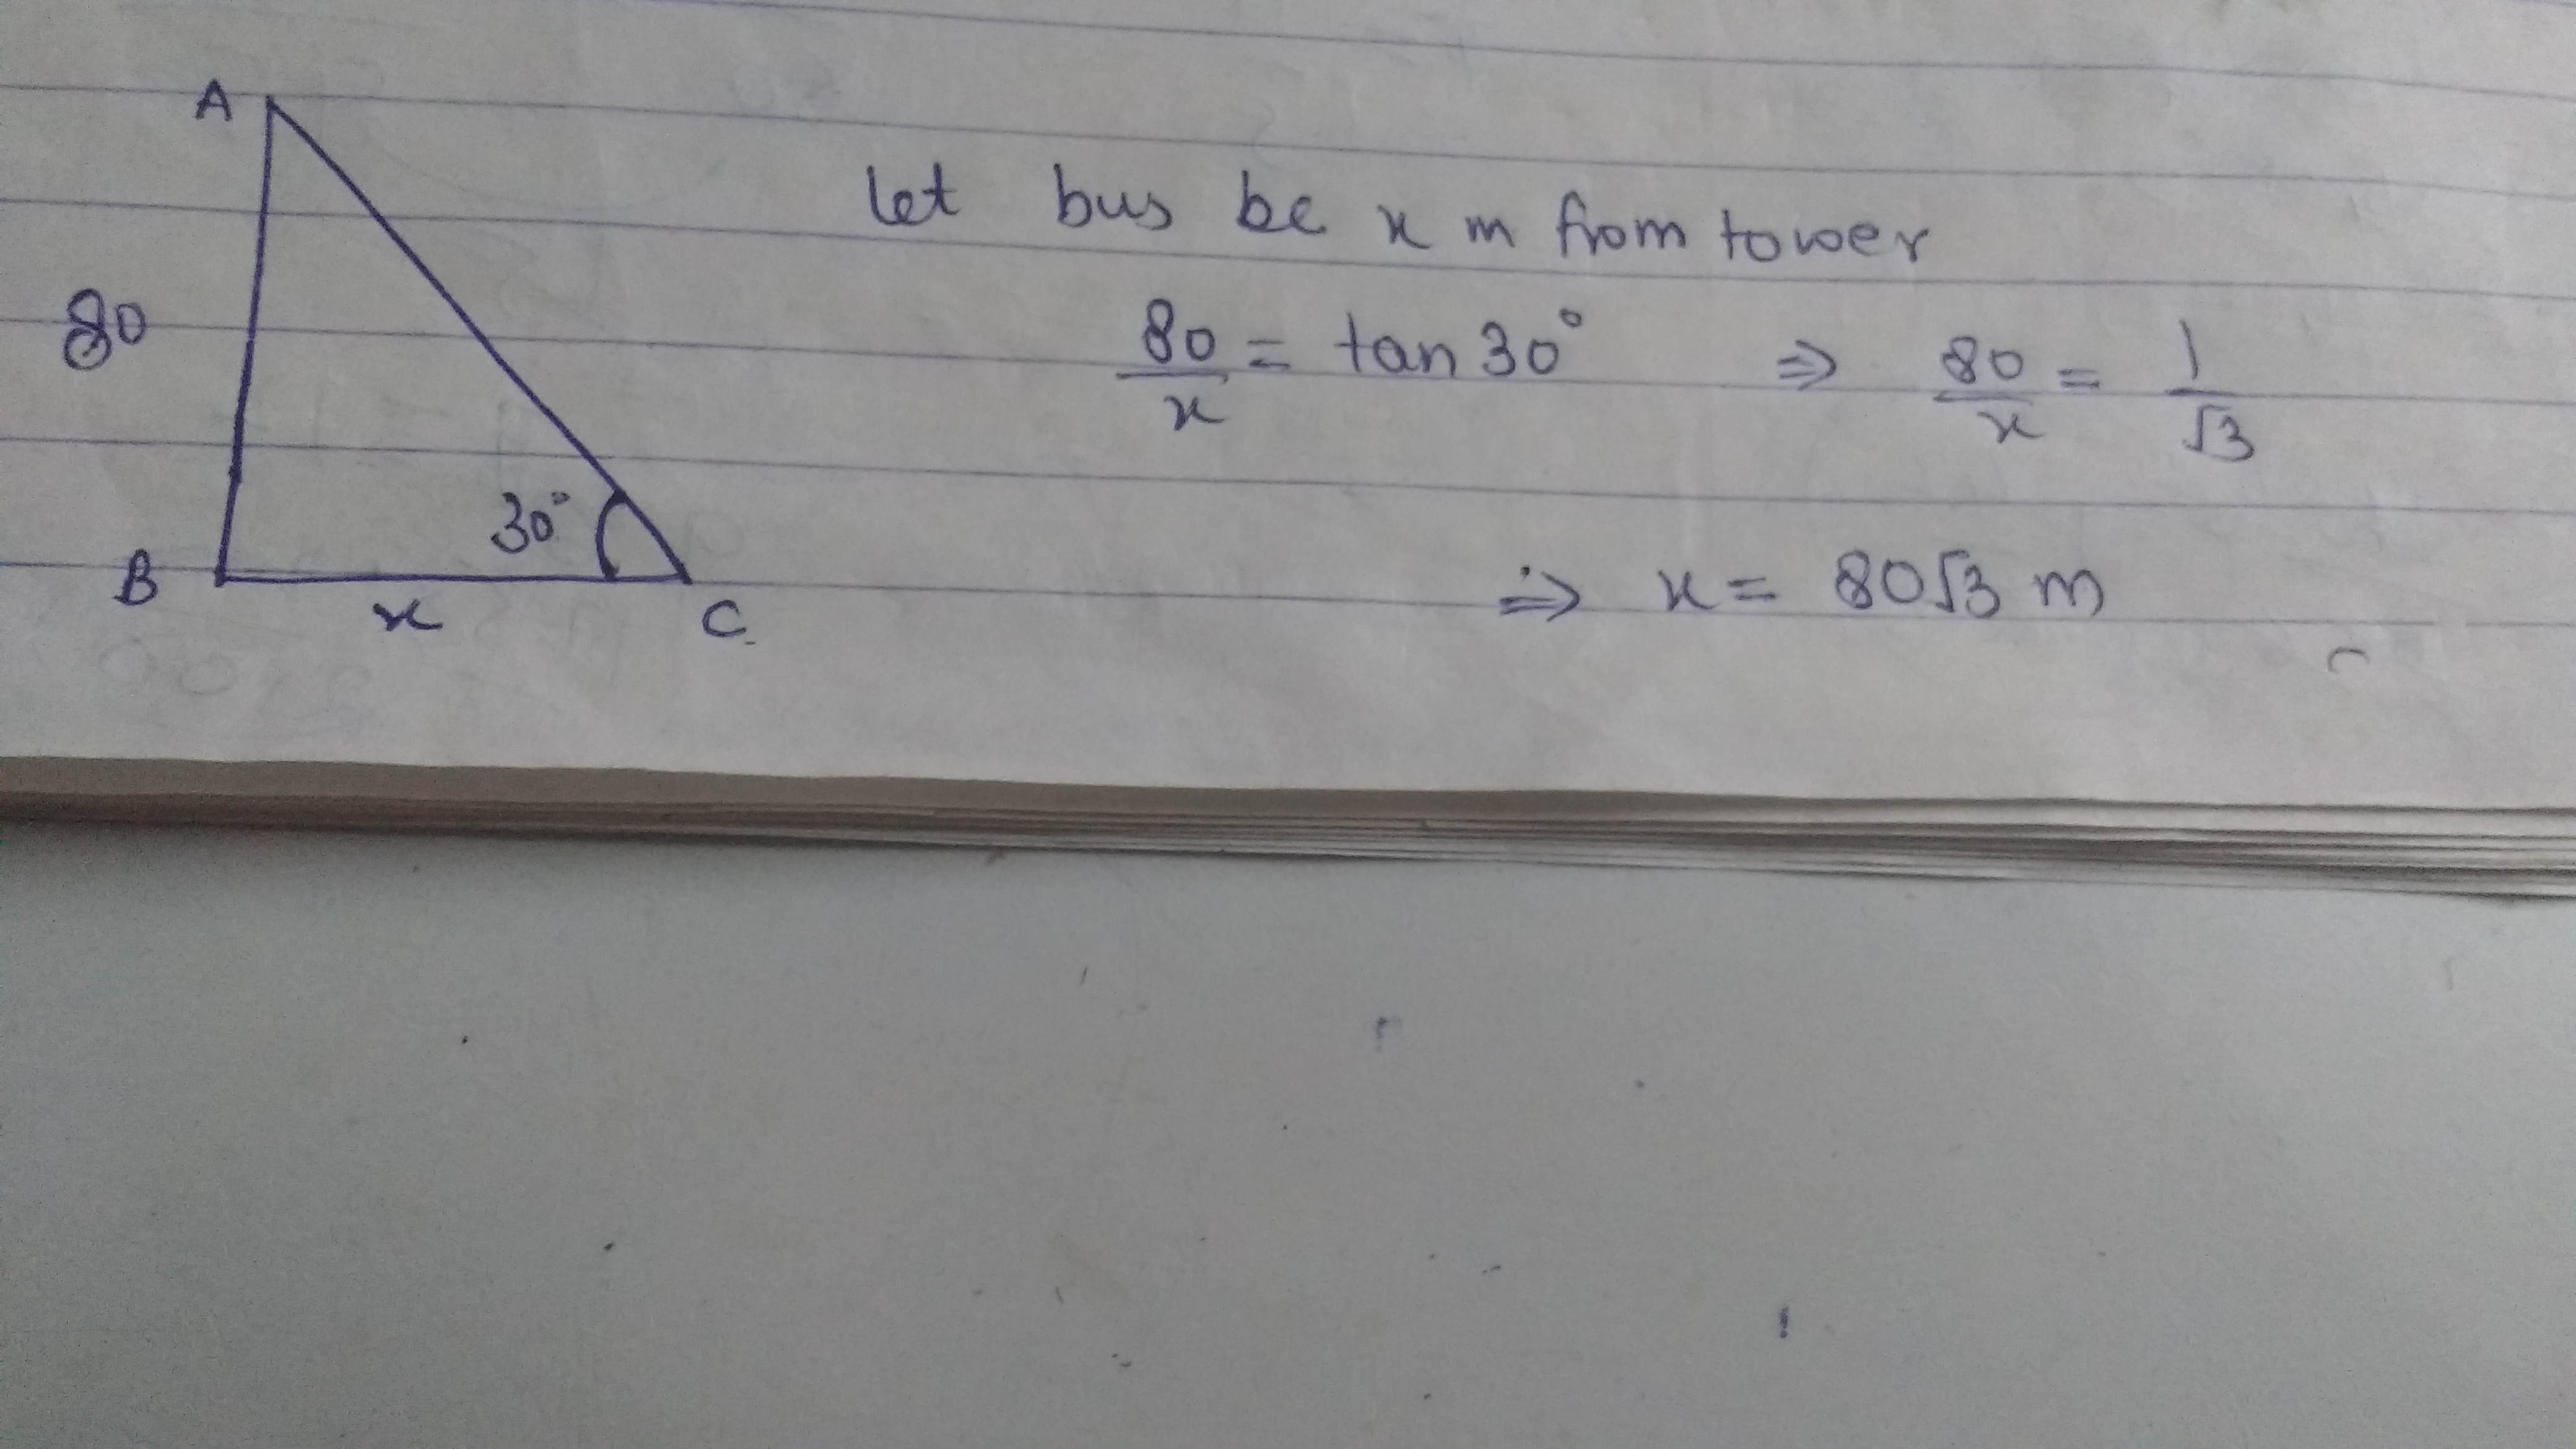 A
80
30°
B
x
C
Let bus be x m from tower
80/x = tan 30° ⇒ 80/x = 1/√3
⇒ x = 80√3 m